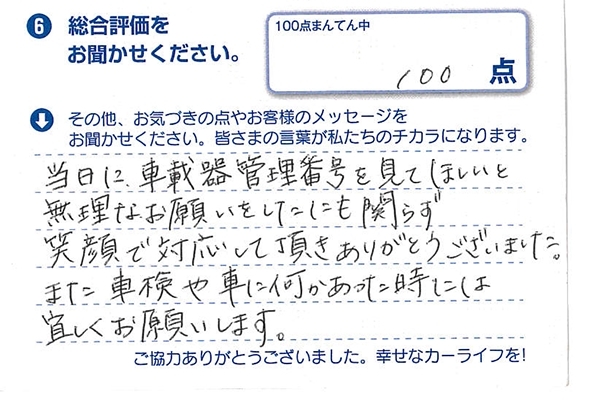 6 総合評価を
お聞かせください。
100点まんてん中
100 点
その他、お気づきの点やお客様のメッセージを
お聞かせください。皆さまの言葉が私たちのチカラになります。
当日に、車載器管理番号を見てほしいと
無理なお願いをしたにも関らず
笑顔で対応して頂きありがとうございました。
また車検や車に何かあった時には
宜しくお願いします。
ご協力ありがとうございました。幸せなカーライフを!